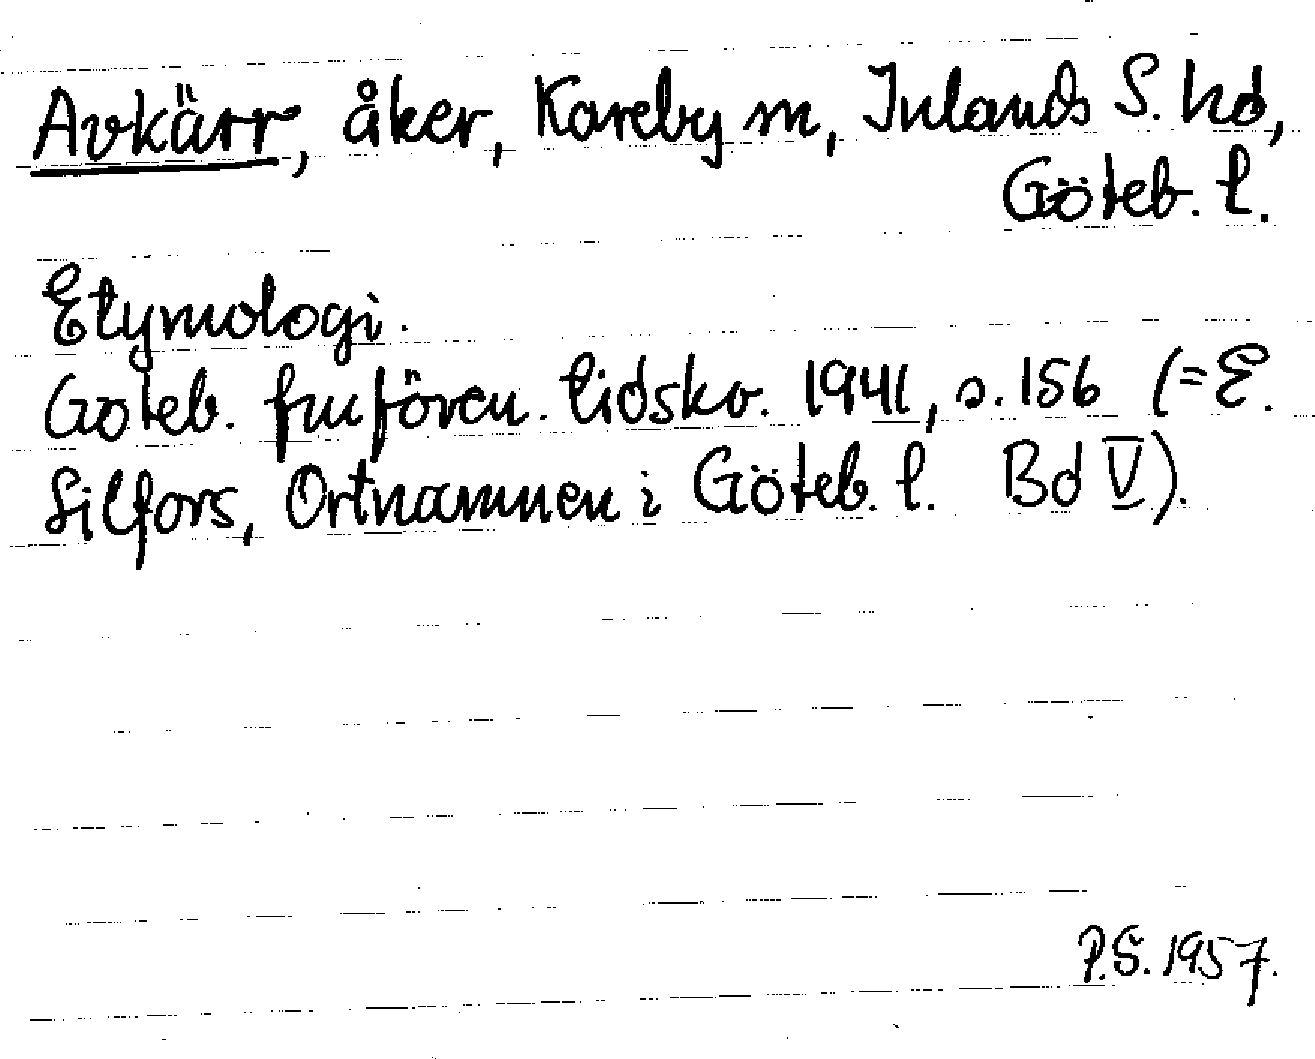 Avkärr, åker, Kareby sn, Inlands S. hd,
Göteb. l.
Etymologi.
Göteb. fmfören. tidskr. 1941, s. 156 (= E.
Silfors, Ortnamnen i Göteb. l. Bd V).
P.S. 1957.